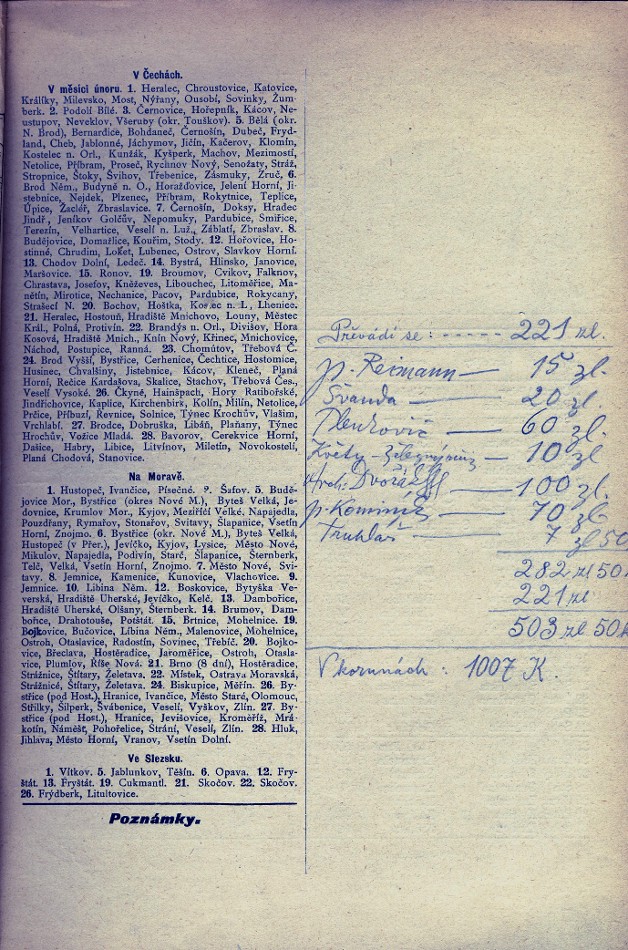 V Čechách.
V měsíci únoru. 1. Heralec, Chroustovice, Katovice,
Králíky, Milevsko, Most, Nýřany, Ousobí, Sovinky, Žum-
berk. 2. Podolí Bílé. 3. Černovice, Hořepník, Kácov, Ne-
ustupov, Neveklov, Všeruby (okr. Touškov). 5. Bělá (okr.
N. Brod), Bernardice, Bohdaneč, Černošín, Dubeč, Fryd-
land, Cheb, Jablonné, Jáchymov, Jičín, Kačerov, Klomín,
Kostelec n. Orl., Kunžák, Kyšperk, Machov, Mezimostí,
Netolice, Příbram, Proseč, Rychnov Nový, Senožaty, Stráž,
Stropnice, Štoky, Švihov, Třebenice, Zásmuky, Zruč, 6.
Brod Něm., Budyně n. O., Horažďovice, Jelení Horní, Ji-
stebnice, Nejdek, Plzenec, Příbram, Rokytnice, Teplice,
Úpice, Žacléř, Zbraslavice. 7. Černošín, Doksy, Hradec
Jindř., Jeníkov Golčův, Nepomuky, Pardubice, Smiřice,
Terezín, Velhartice, Veselí n. Luž., Záblatí, Zbraslav. 8.
Budějovice, Domažlice, Kouřim, Stody. 12. Hořovice, Ho-
stinné, Chrudim, Loket, Lubenec, Ostrov, Slavkov Horní.
13. Chodov Dolní, Ledeč. 14. Bystrá, Hlinsko, Janovice,
Maršovice. 15. Ronov. 19. Broumov, Cvikov, Falknov,
Chrastava, Josefov, Kněževes, Libouchec, Litoměřice, Ma-
nětín, Mirotice, Nechanice, Pacov, Pardubice, Rokycany,
Strašecí N. 20. Bochov, Hoštka, Kosec n. L., Lhenice.
21. Heralec, Hostouň, Hradiště Mnichovo, Louny, Městec
Král., Polná, Protivín. 22. Brandýs n. Orl., Divišov, Hora
Kosová, Hradiště Mnich., Knín Nový, Křinec, Mnichovice,
Náchod, Postupice, Ranná. 23. Chomútov, Třebová Č.
24. Brod Vyšší, Bystřice, Cerhenice, Čechtice, Hostomice,
Husinec, Chvalšiny, Jistebnice, Kácov, Kleneč, Planá
Horní, Rečice Kardašova, Skalice, Stachov, Třebová Čes.,
Veselí Vysoké. 26. Čkyně, Hainšpach, Hory Ratibořské,
Jindřichovice, Kaplice, Kirchenbirk, Kolín, Milín, Netolice,
Prčice, Příbuzí, Řevnice, Solnice, Týnec Krochův, Vlašim,
Vrchlabí. 27. Brodce, Dobruška, Libáň, Plaňany, Týnec
Hrochův, Vožice Mladá. 28. Bavorov, Cerekvice Horní,
Dašice, Habry, Libice, Litvínov, Miletín, Novokostelí,
Planá Chodová, Stanovice.
Na Moravě.
1. Hustopeč, Ivančice, Písečné. 9. Šafov. 5. Budě-
jovice Mor., Bystřice (okres Nové M.), Byteš Velká, Je-
dovnice, Krumlov Mor., Kyjov, Meziříčí Velké, Napajedla,
Pouzdřany, Rymařov, Stonařov, Svitavy, Šlapanice, Vsetín
Horní, Znojmo. 6. Bystřice (okr. Nové M.), Byteš Velká,
Hustopeč (v Přer.), Jevíčko, Kyjov, Lysice, Město Nové,
Mikulov, Napajedla, Podivín, Starč, Šlapanice, Šternberk,
Telč, Velká, Vsetín Horní, Znojmo. 7. Město Nové, Svi-
tavy. 8. Jemnice, Kamenice, Kunovice, Vlachovice. 9.
Jemnice. 10. Libina Něm. 12. Boskovice, Bytyška Ve-
verská, Hradiště Uherské, Jevíčko, Kelč. 13. Dambořice,
Hradiště Uherské, Olšany, Šternberk. 14. Brumov, Dam-
bořice, Drahotouše, Potštát. 15. Brtnice, Mohelnice. 19.
Bojkovice, Bučovice, Líbina Něm., Malenovice, Mohelnice,
Ostroh, Otaslavice, Radostín, Sovinec, Třebíč. 20. Bojko-
vice, Břeclava, Hostěradice, Jaroměřice, Ostroh, Otasla-
vice, Plumlov, Říše Nová. 21. Brno (8 dní), Hostěradice,
Strážnice, Štítary, Želetava. 22. Místek, Ostrava Moravská,
Strážnicé, Štítary, Želetava. 24. Biskupice, Měřín. 26. By-
střice (pod Host.), Hranice, Ivančice, Město Staré, Olomouc,
Střílky, Šilperk, Švábenice, Veselí, Vyškov, Zlín. 27. By-
střice (pod Host.), Hranice, Jevišovice, Kroměříž, Mrá-
kotín, Náměšť, Pohořelice, Strání, Veselí, Zlín. 28. Hluk,
Jihlava, Město Horní, Vranov, Vsetín Dolní.
Ve Slezsku.
1. Vítkov. 5. Jablunkov, Těšín. 6. Opava. 12. Fry-
štát. 13. Fryštát. 19. Cukmantl. 21. Skočov. 22. Skočov.
26. Frýdberk, Litultovice.
Poznámky.
Převádí se : ----- 221 zl.
p. Reimann — 15 zl.
Švanda — 20 zl.
60 zl.
Květy 10 zl
Arch. Dvořák 100 zl.
p. Kominík 70 zl.
Truhlář — 7 zl 50
282 zl 50 k
221 zl
503 zl 50 k
V korunách : 1007 K.